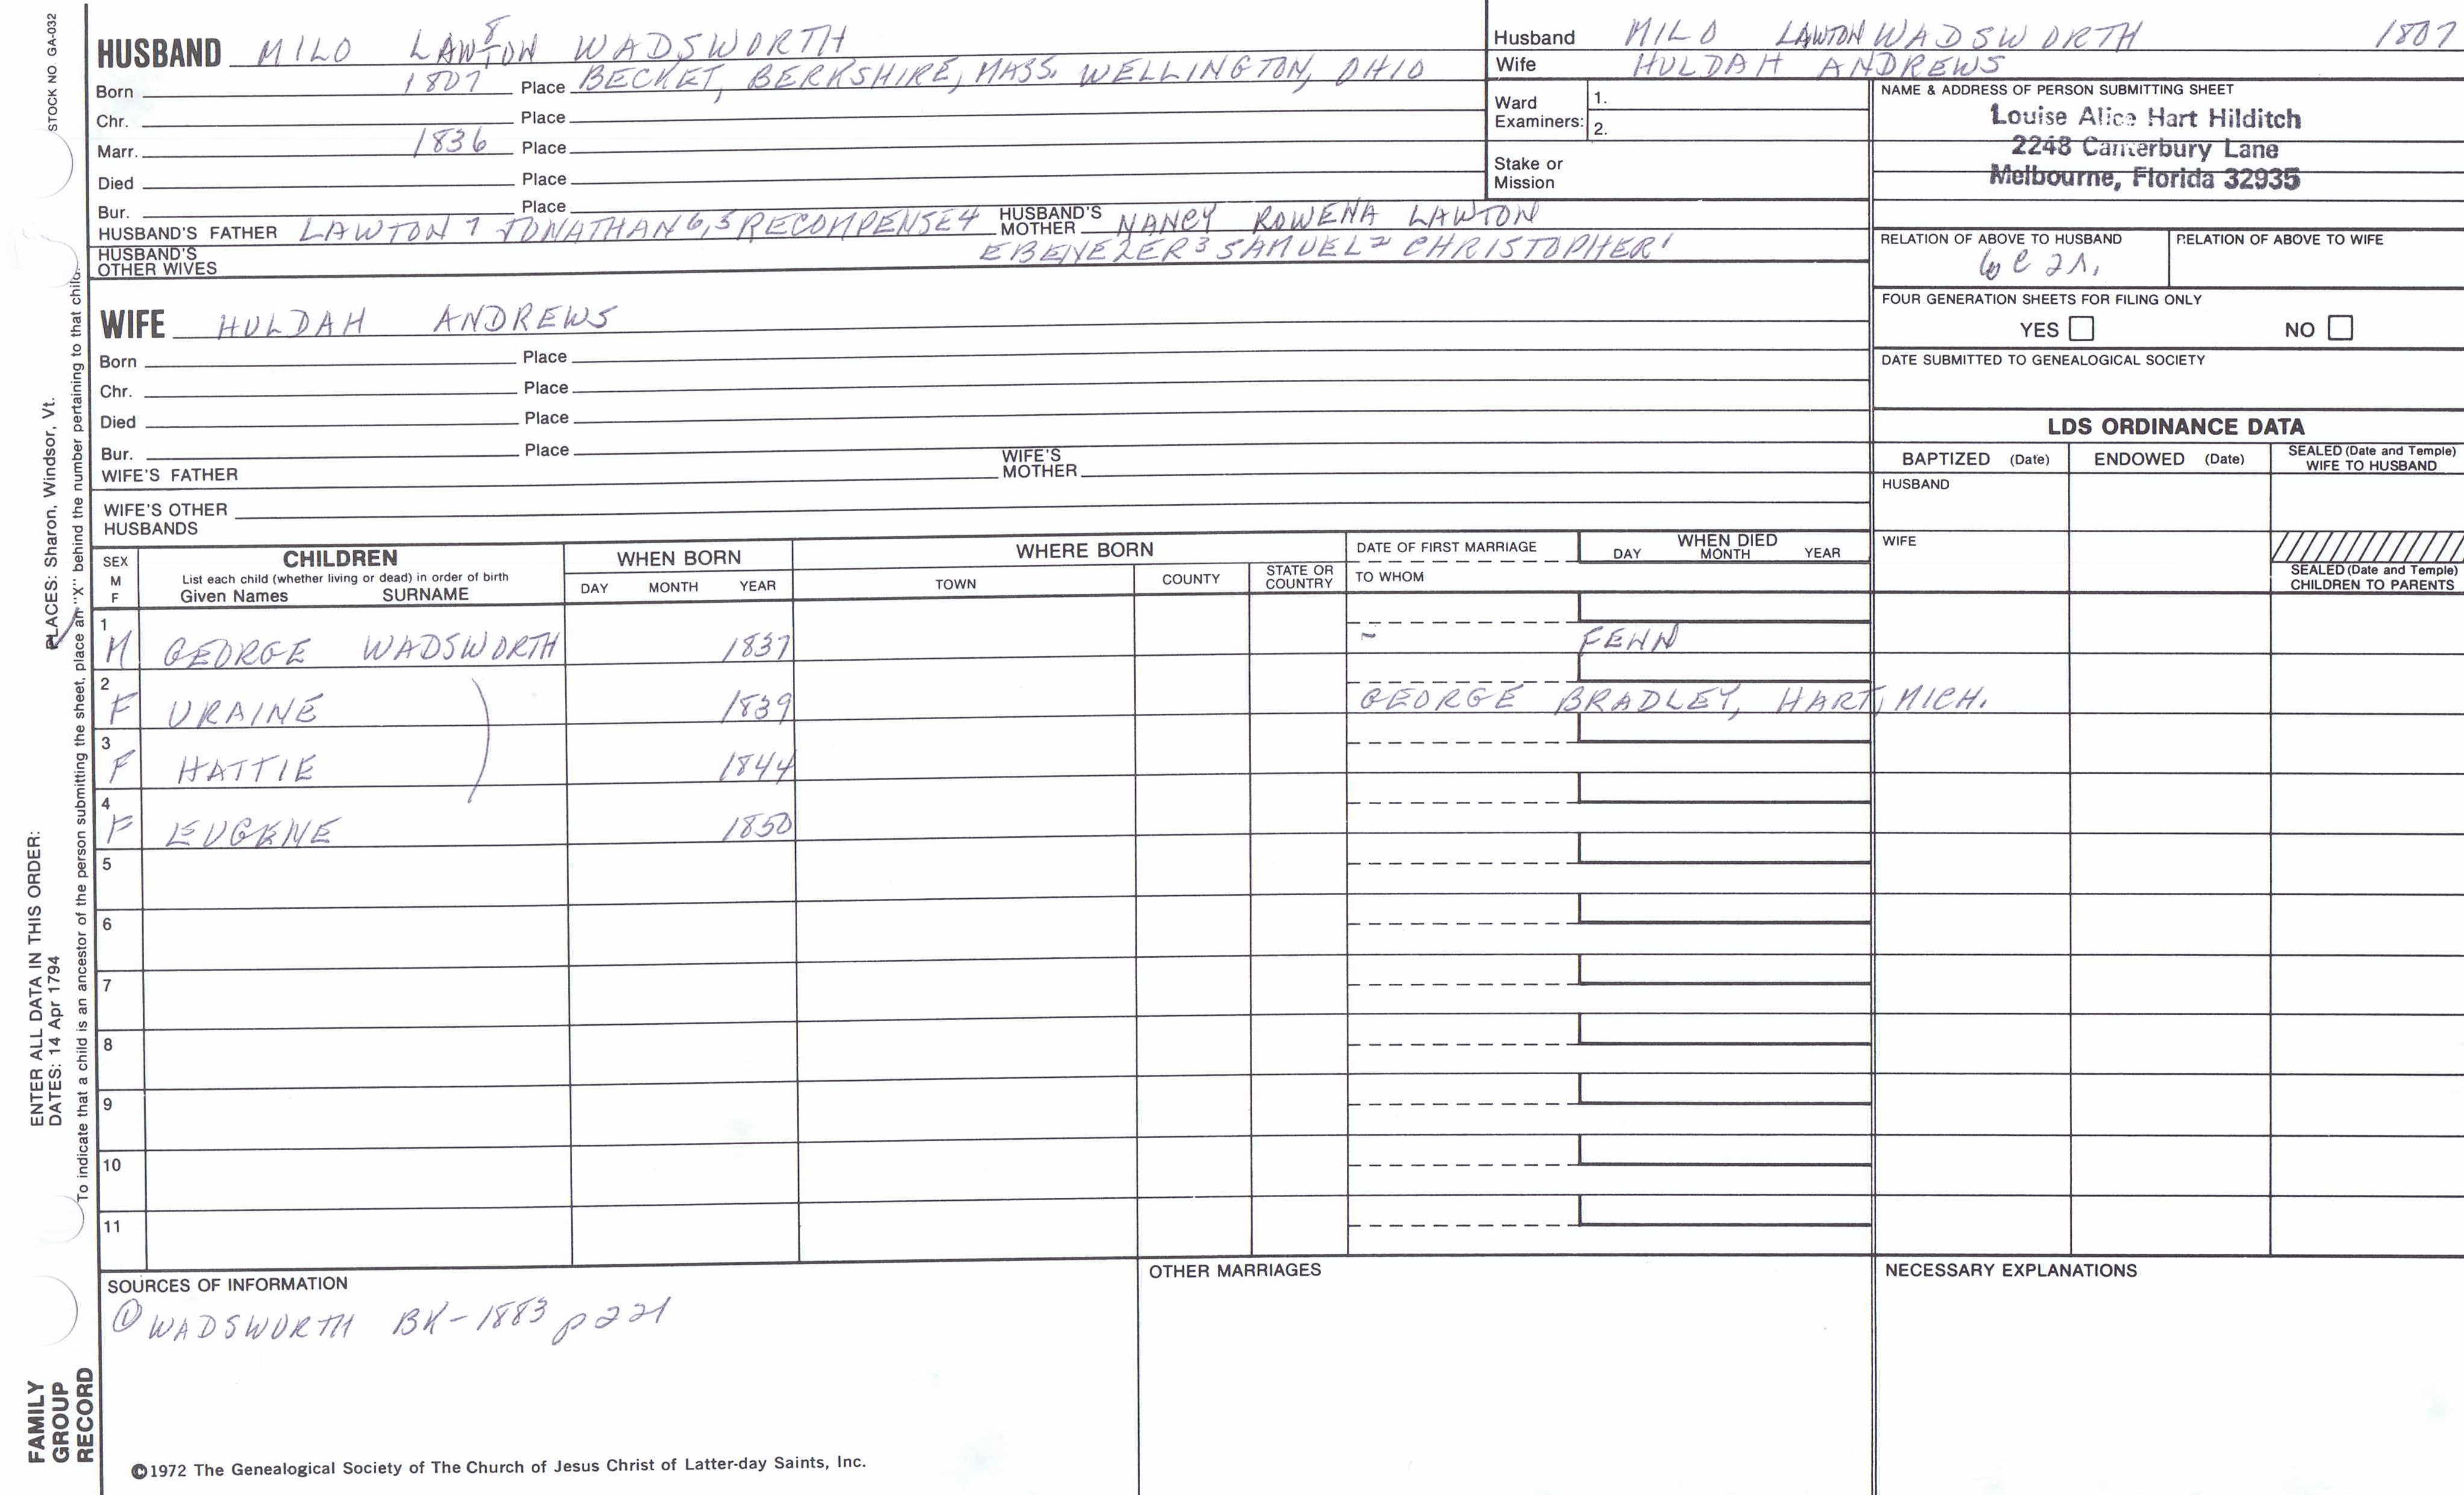 STOCK NO. GA-032
PLACES: Sharon, Windsor, Vt.
ENTER ALL DATA IN THIS ORDER:
DATES: 14 Apr 1794
To indicate that a child is an ancestor of the person submitting the sheet, place an "X" behind the number pertaining to that child.
FAMILY
GROUP
RECORD
HUSBAND MILO LAWTON 8 WADSWORTH
Born 1807 Place BECKET, BERKSHIRE, MASS. WELLINGTON, OHIO
Chr. Place
Marr. 1836 Place
Died Place
Bur. Place
HUSBAND'S FATHER LAWTON 7 JONATHAN 6,5 RECOMPENSE 4 HUSBAND'S MOTHER NANCY ROWENA LAWTON
HUSBAND'S OTHER WIVES EBENEZER 3 SAMUEL 2 CHRISTOPHER 1
WIFE HULDAH ANDREWS
Born Place
Chr. Place
Died Place
Bur. Place
WIFE'S FATHER WIFE'S MOTHER
WIFE'S OTHER HUSBANDS
Husband MILO LAWTON WADSWORTH 1807
Wife HULDAH ANDREWS
Ward Examiners: 1.
2.
Stake or Mission
NAME & ADDRESS OF PERSON SUBMITTING SHEET
Louise Alice Hart Hilditch
2248 Canterbury Lane
Melbourne, Florida 32935
RELATION OF ABOVE TO HUSBAND RELATION OF ABOVE TO WIFE
6 C 2 r.
FOUR GENERATION SHEETS FOR FILING ONLY
YES NO
DATE SUBMITTED TO GENEALOGICAL SOCIETY
LDS ORDINANCE DATA
BAPTIZED (Date) ENDOWED (Date) SEALED (Date and Temple) WIFE TO HUSBAND
HUSBAND
WIFE
SEALED (Date and Temple) CHILDREN TO PARENTS
SEX M F CHILDREN WHEN BORN WHERE BORN DATE OF FIRST MARRIAGE WHEN DIED
List each child (whether living or dead) in order of birth
Given Names SURNAME DAY MONTH YEAR TOWN COUNTY STATE OR COUNTRY TO WHOM DAY MONTH YEAR
1 M GEORGE WADSWORTH 1837 - FENN
2 F URAINE 1839 GEORGE BRADLEY, HART, MICH.
3 F HATTIE 1844
4 F EUGENE 1850
5
6
7
8
9
10
11
SOURCES OF INFORMATION
① WADSWORTH BK-1883 p 221
OTHER MARRIAGES
NECESSARY EXPLANATIONS
©1972 The Genealogical Society of The Church of Jesus Christ of Latter-day Saints, Inc.